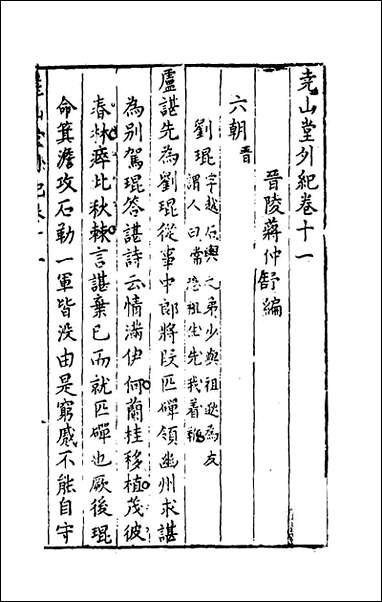 堯山堂外紀卷十一
晉陵蔣仲舒編
六朝晉
劉琨字越石輿之弟少與祖逖為友
謂人曰常恐祖生先我着鞭
盧諶先為劉琨從事中郎將段匹磾領幽州求諶
為别駕琨答諶詩云情滿伊何蘭桂移植茂彼
春林瘁比秋棘言諶棄己而就匹磾也厥後琨
命箕澹攻石勒一軍皆没由是窮蹙不能自守